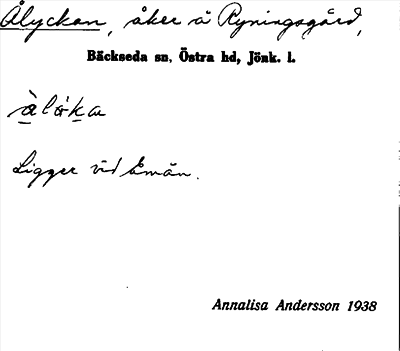 Ålyckan, åker å Ryningsgård,
Bäckseda sn, Östra hd, Jönk. l.
àlöka
Ligger vid Emån.
Annalisa Andersson 1938